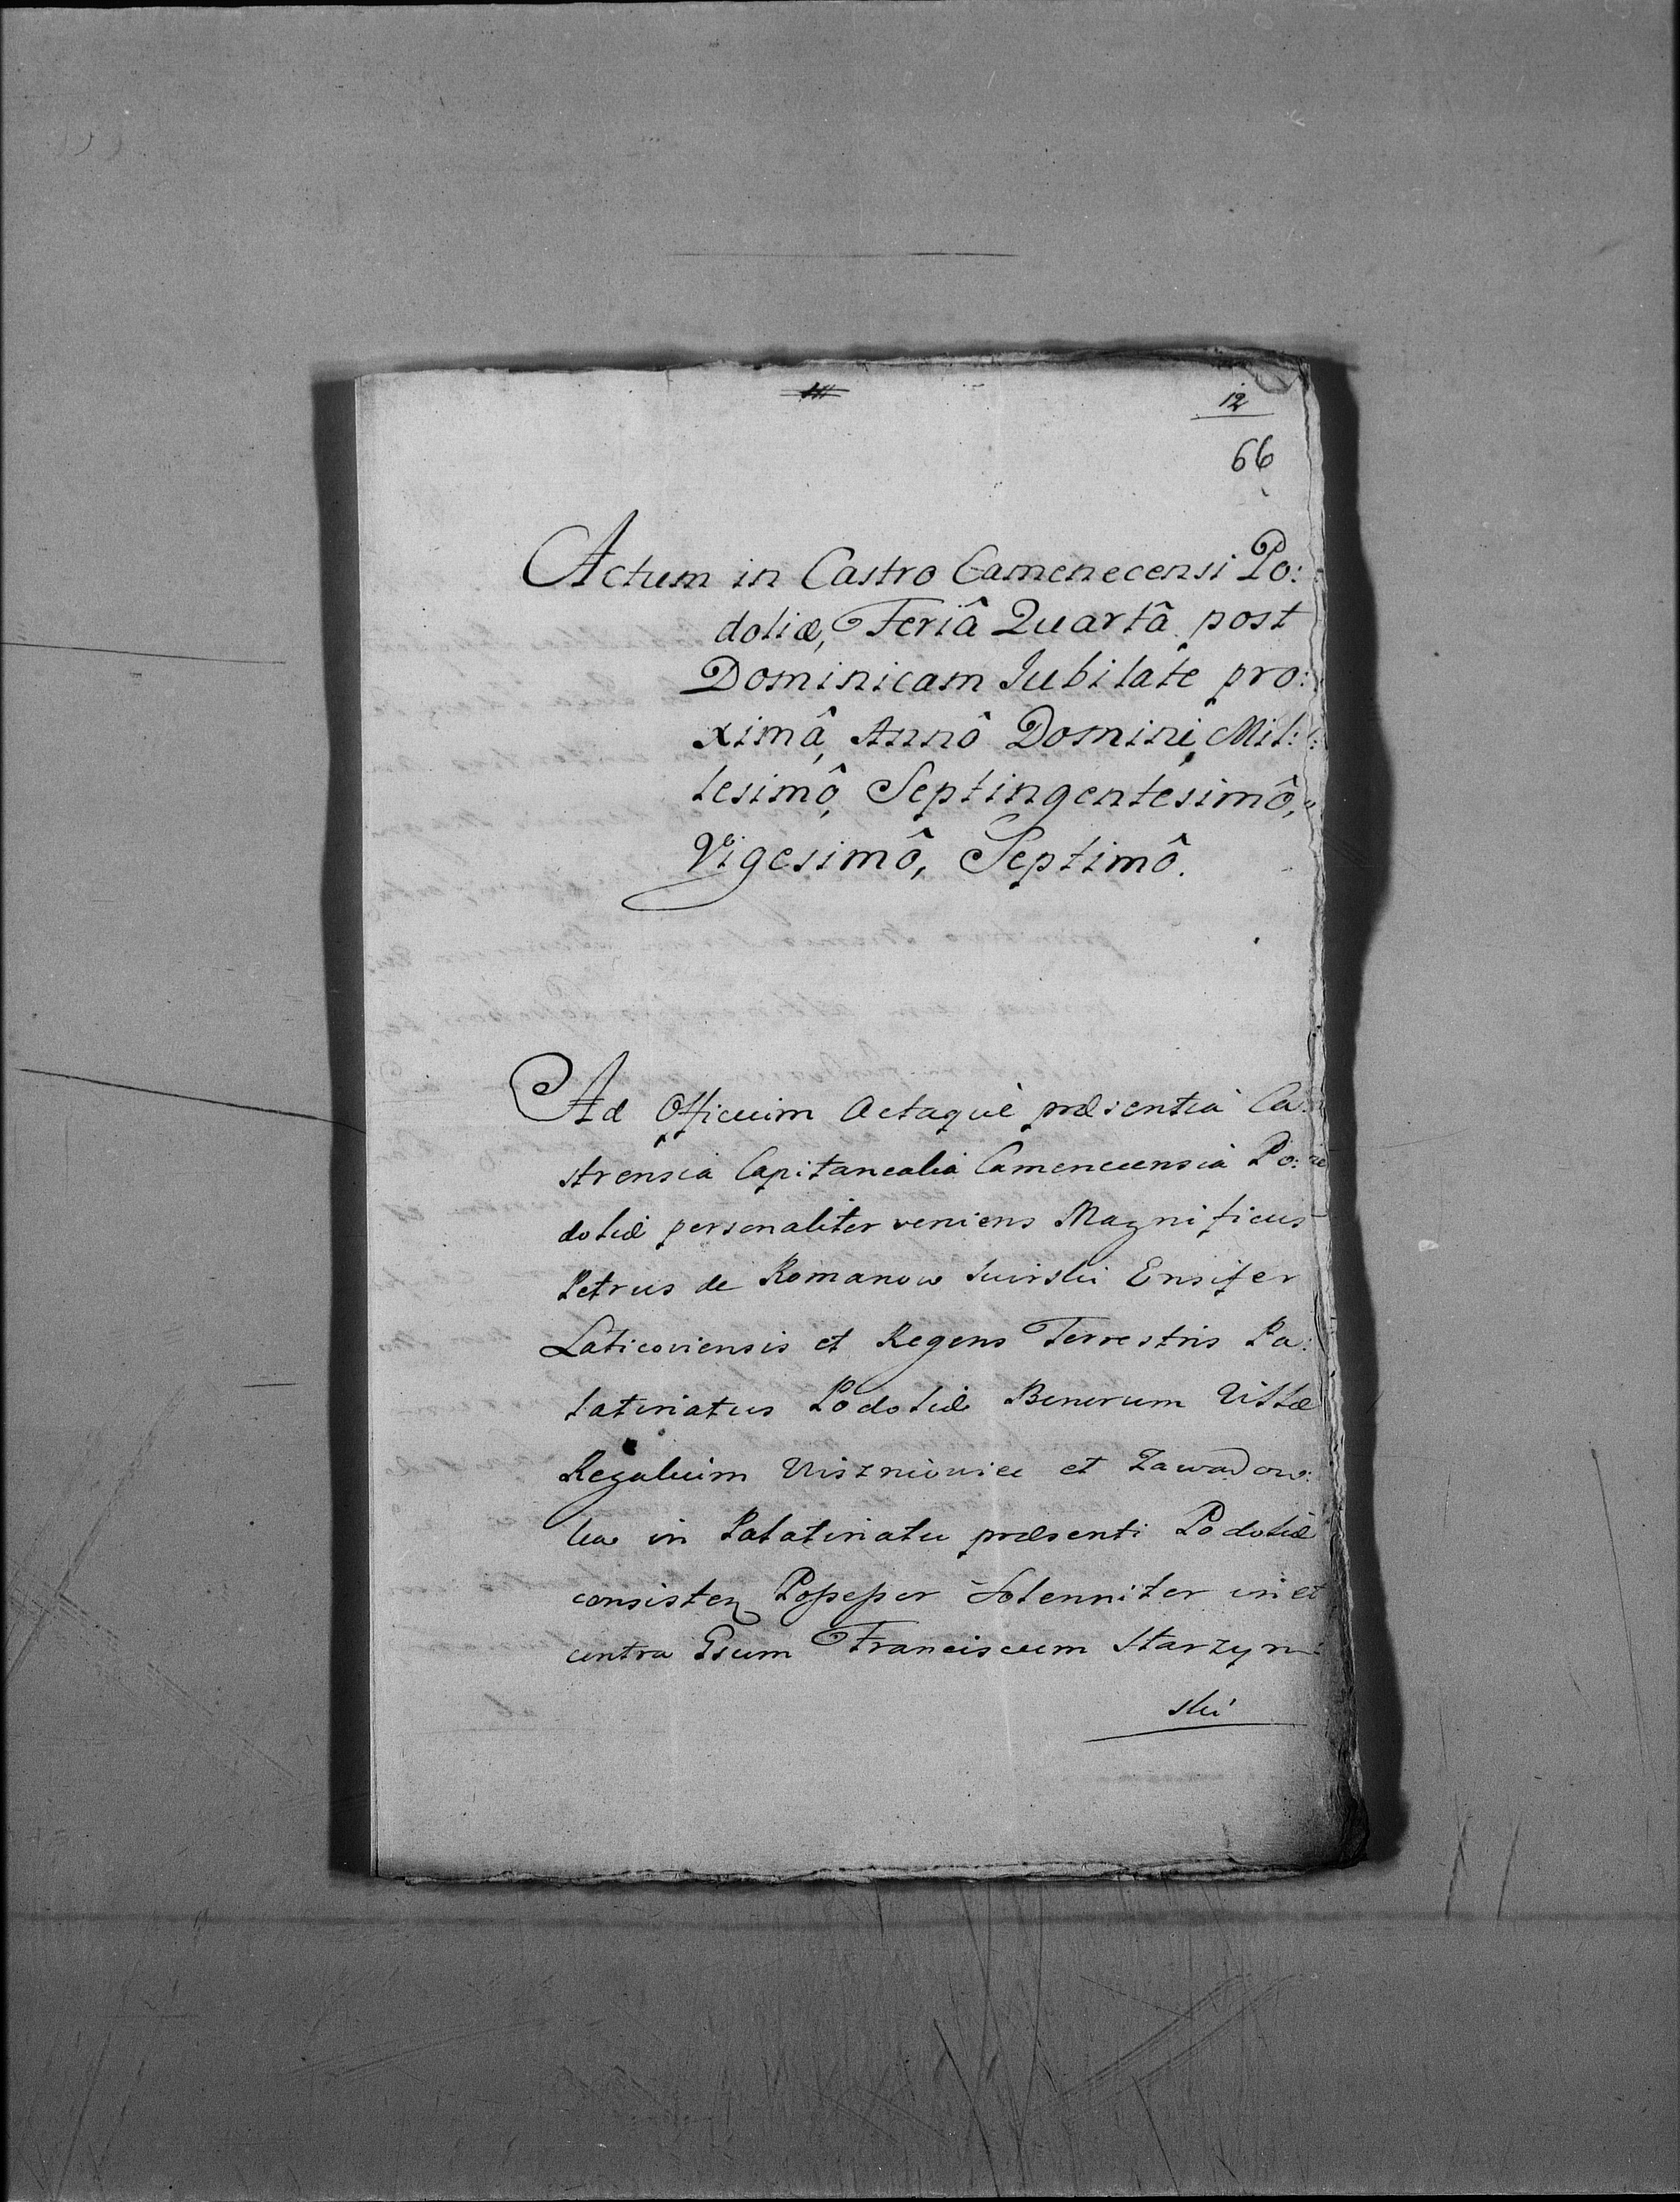 12
66
Actum in Castro Camenecensi Po:
doliæ, Feriâ Quartâ post
Dominicam Jubilate pro:
ximâ, Annô Domini, Mil:
lesimô, Septingentesimô,
Vigesimô, Septimô.
Ad Officium Actaque præsentia Ca:
strensia Capitanealia Camenecensia Po:
doliæ personaliter veniens Magnificus
Petrus de Romanow Swirski Ensifer
Laticoviensis et Regens Terrestris Pa:
latinatus Podoliæ Bonorum Villæ
Regalium Uiszniowiec et Zawadow:
ka in Palatinatu præsenti Podoliæ
consisten Possessor Solenniter in et
contra Gsum Franciscum Starzyn:
ski